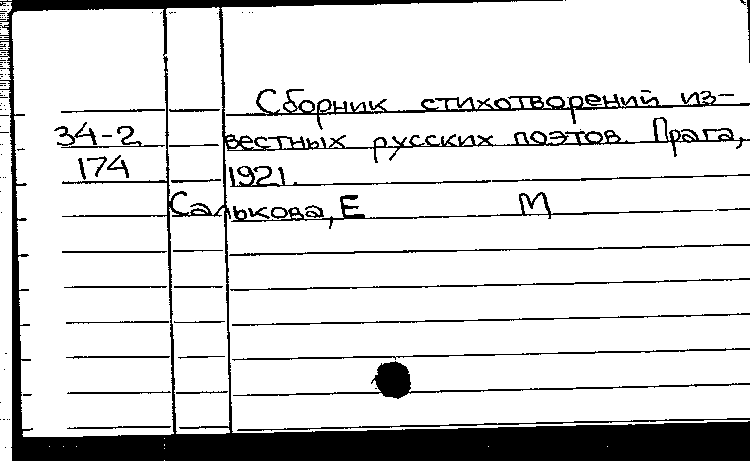 Сборник стихотворений из-
34-2 вестных русских поэтов. Прага,
174 1921.
Салькова, Е М